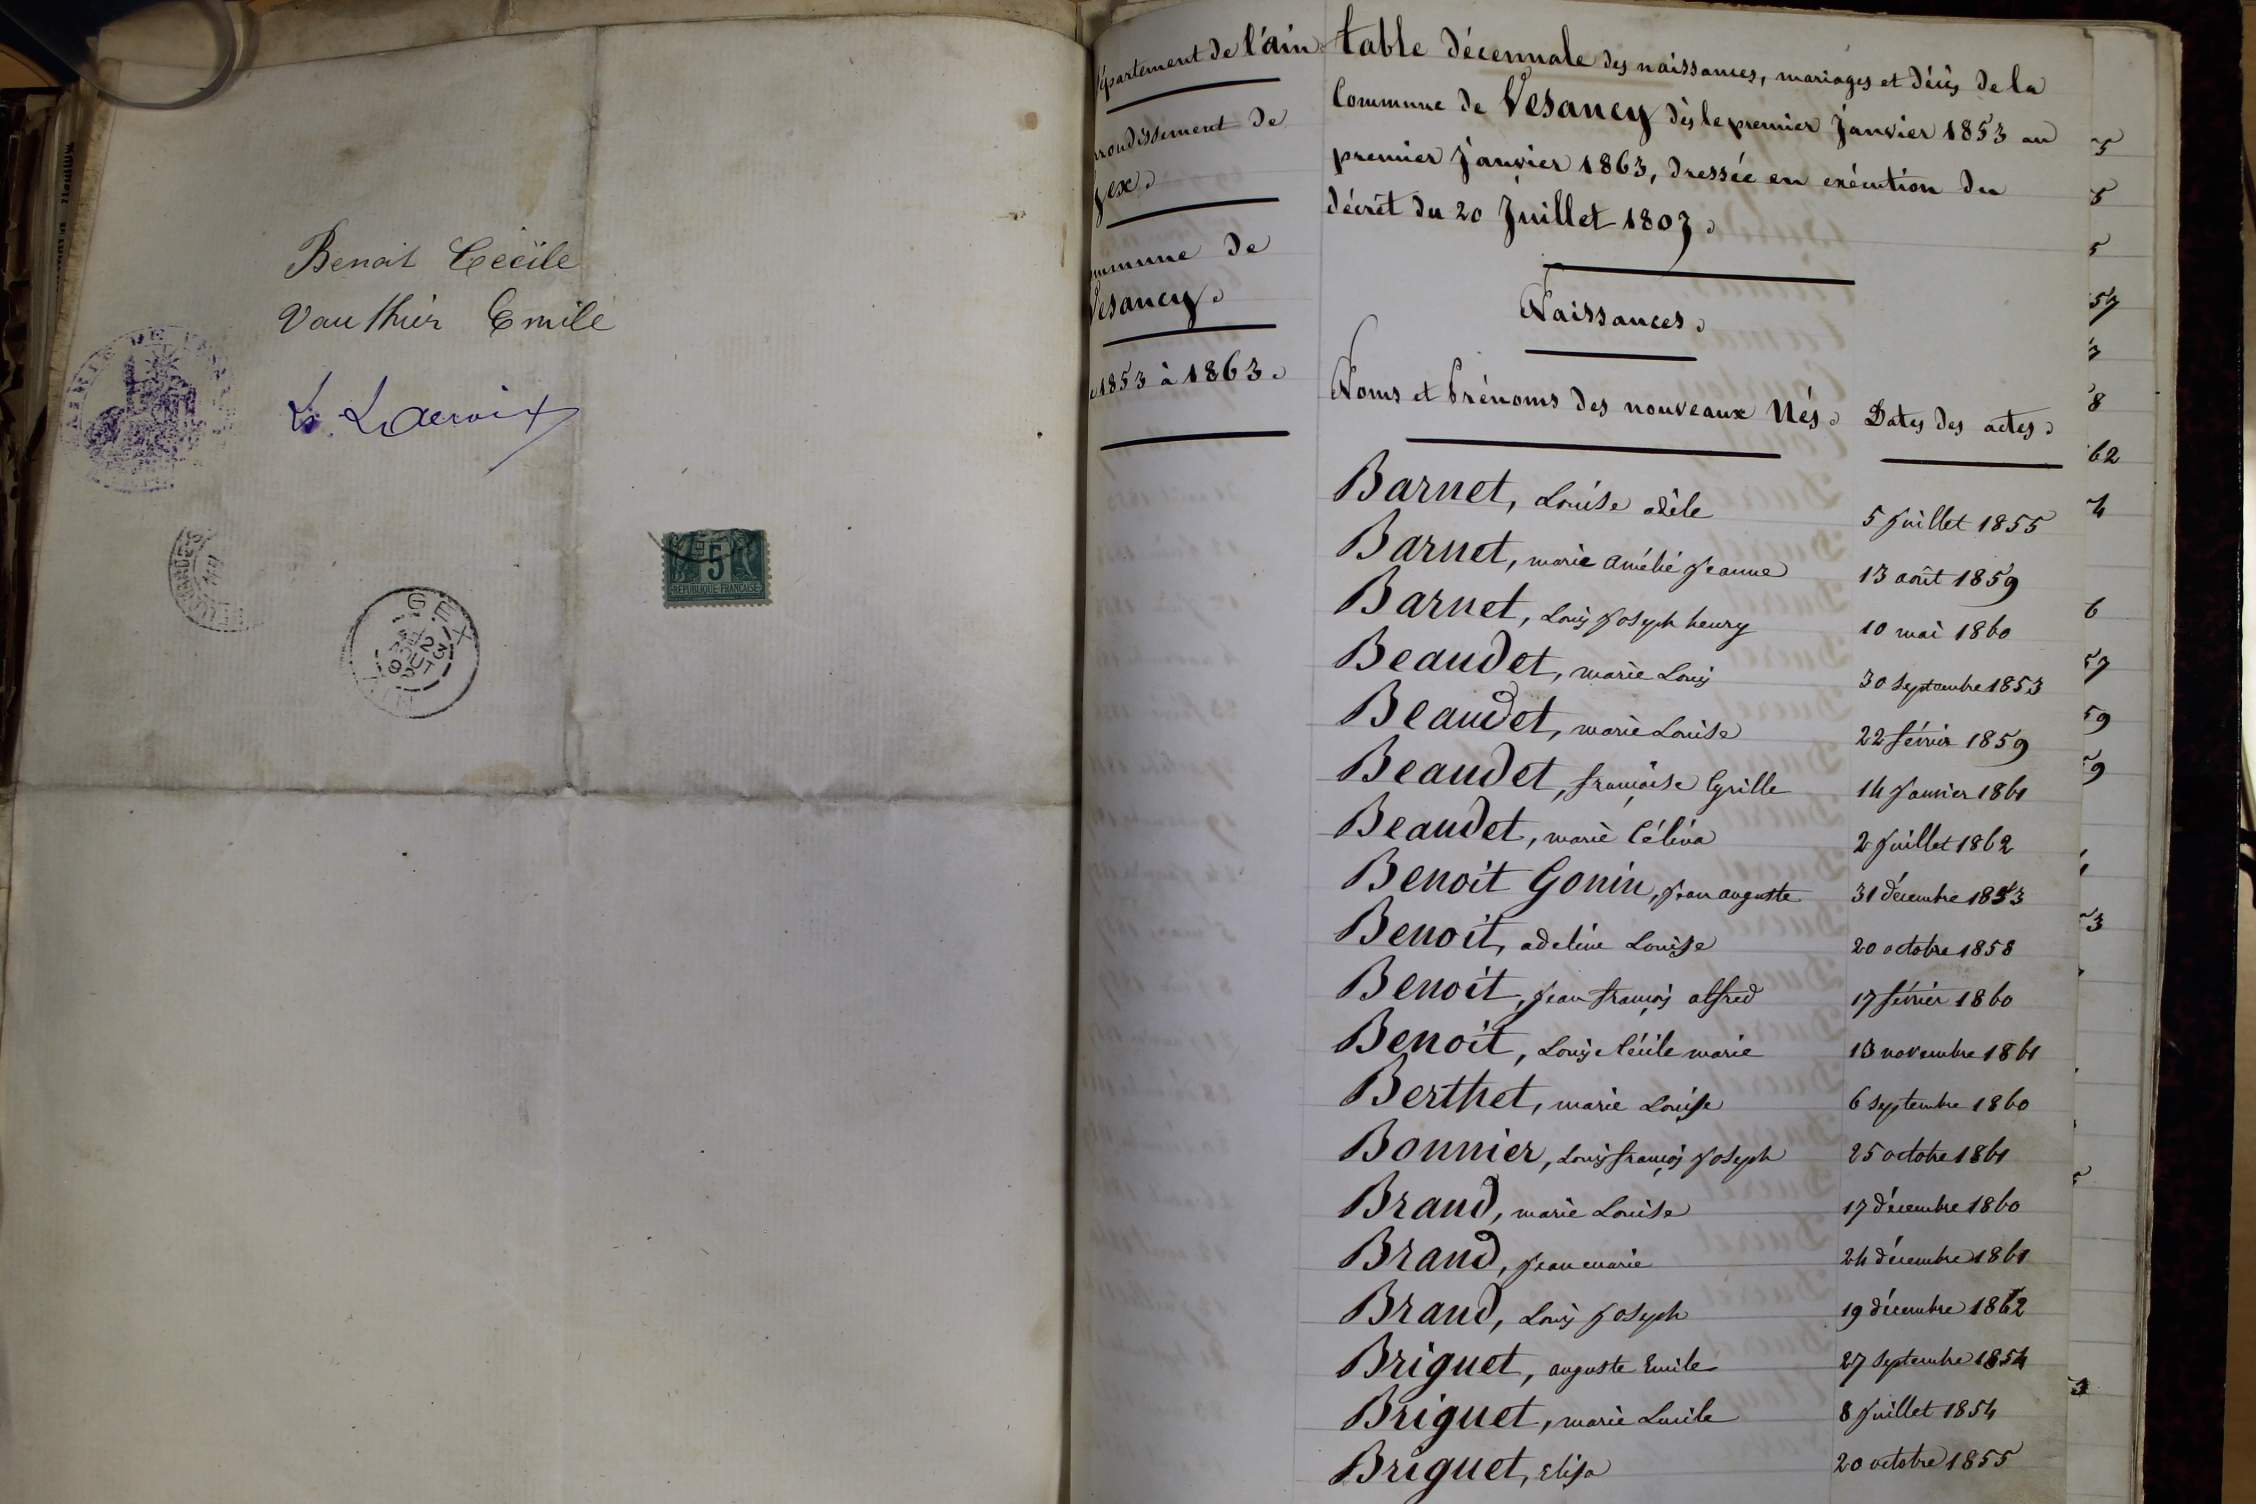 Benoit Cécile
Vauthier Emile
L. Lacroix
MAIRIE DE
GEX
AIN
5
REPUBLIQUE FRANCAISE
Département de l'ain
arrondissement de
gex
Commune de
Vesancy
1853 à 1863
table décennale des naissances, mariages et décès de la
Commune de Vesancy dès le premier Janvier 1853 au
premier janvier 1863, dressée en exécution du
décrèt du 20 Juillet 1807
Naissances
Noms et Prénoms des nouveaux Nés Dates des actes
Barnet, Louise adèle 5 juillet 1855
Barnet, marie Amélie Jeanne 13 août 1859
Barnet, Louis Joseph henry 10 mai 1860
Beaudet, marie Louis 30 septembre 1853
Beaudet, marie Louise 22 février 1859
Beaudet, françoise Cyrille 14 Janvier 1861
Beaudet, marie Célina 2 Juillet 1862
Benoit Gonin, Jean auguste 31 décembre 1853
Benoit, adeline Louise 20 octobre 1858
Benoit, Jean françois alfred 17 février 1860
Benoit, Louise Cécile marie 13 novembre 1861
Berthet, marie Louise 6 septembre 1860
Bonnier, Louis françois Joseph 25 octobre 1861
Brand, marie Louise 17 décembre 1860
Brand, Jean marie 24 décembre 1861
Brand, Louis Joseph 19 décembre 1862
Briguet, auguste Emile 27 septembre 1854
Briguet, marie Lucile 8 Juillet 1854
Briguet, Elisa 20 octobre 1855